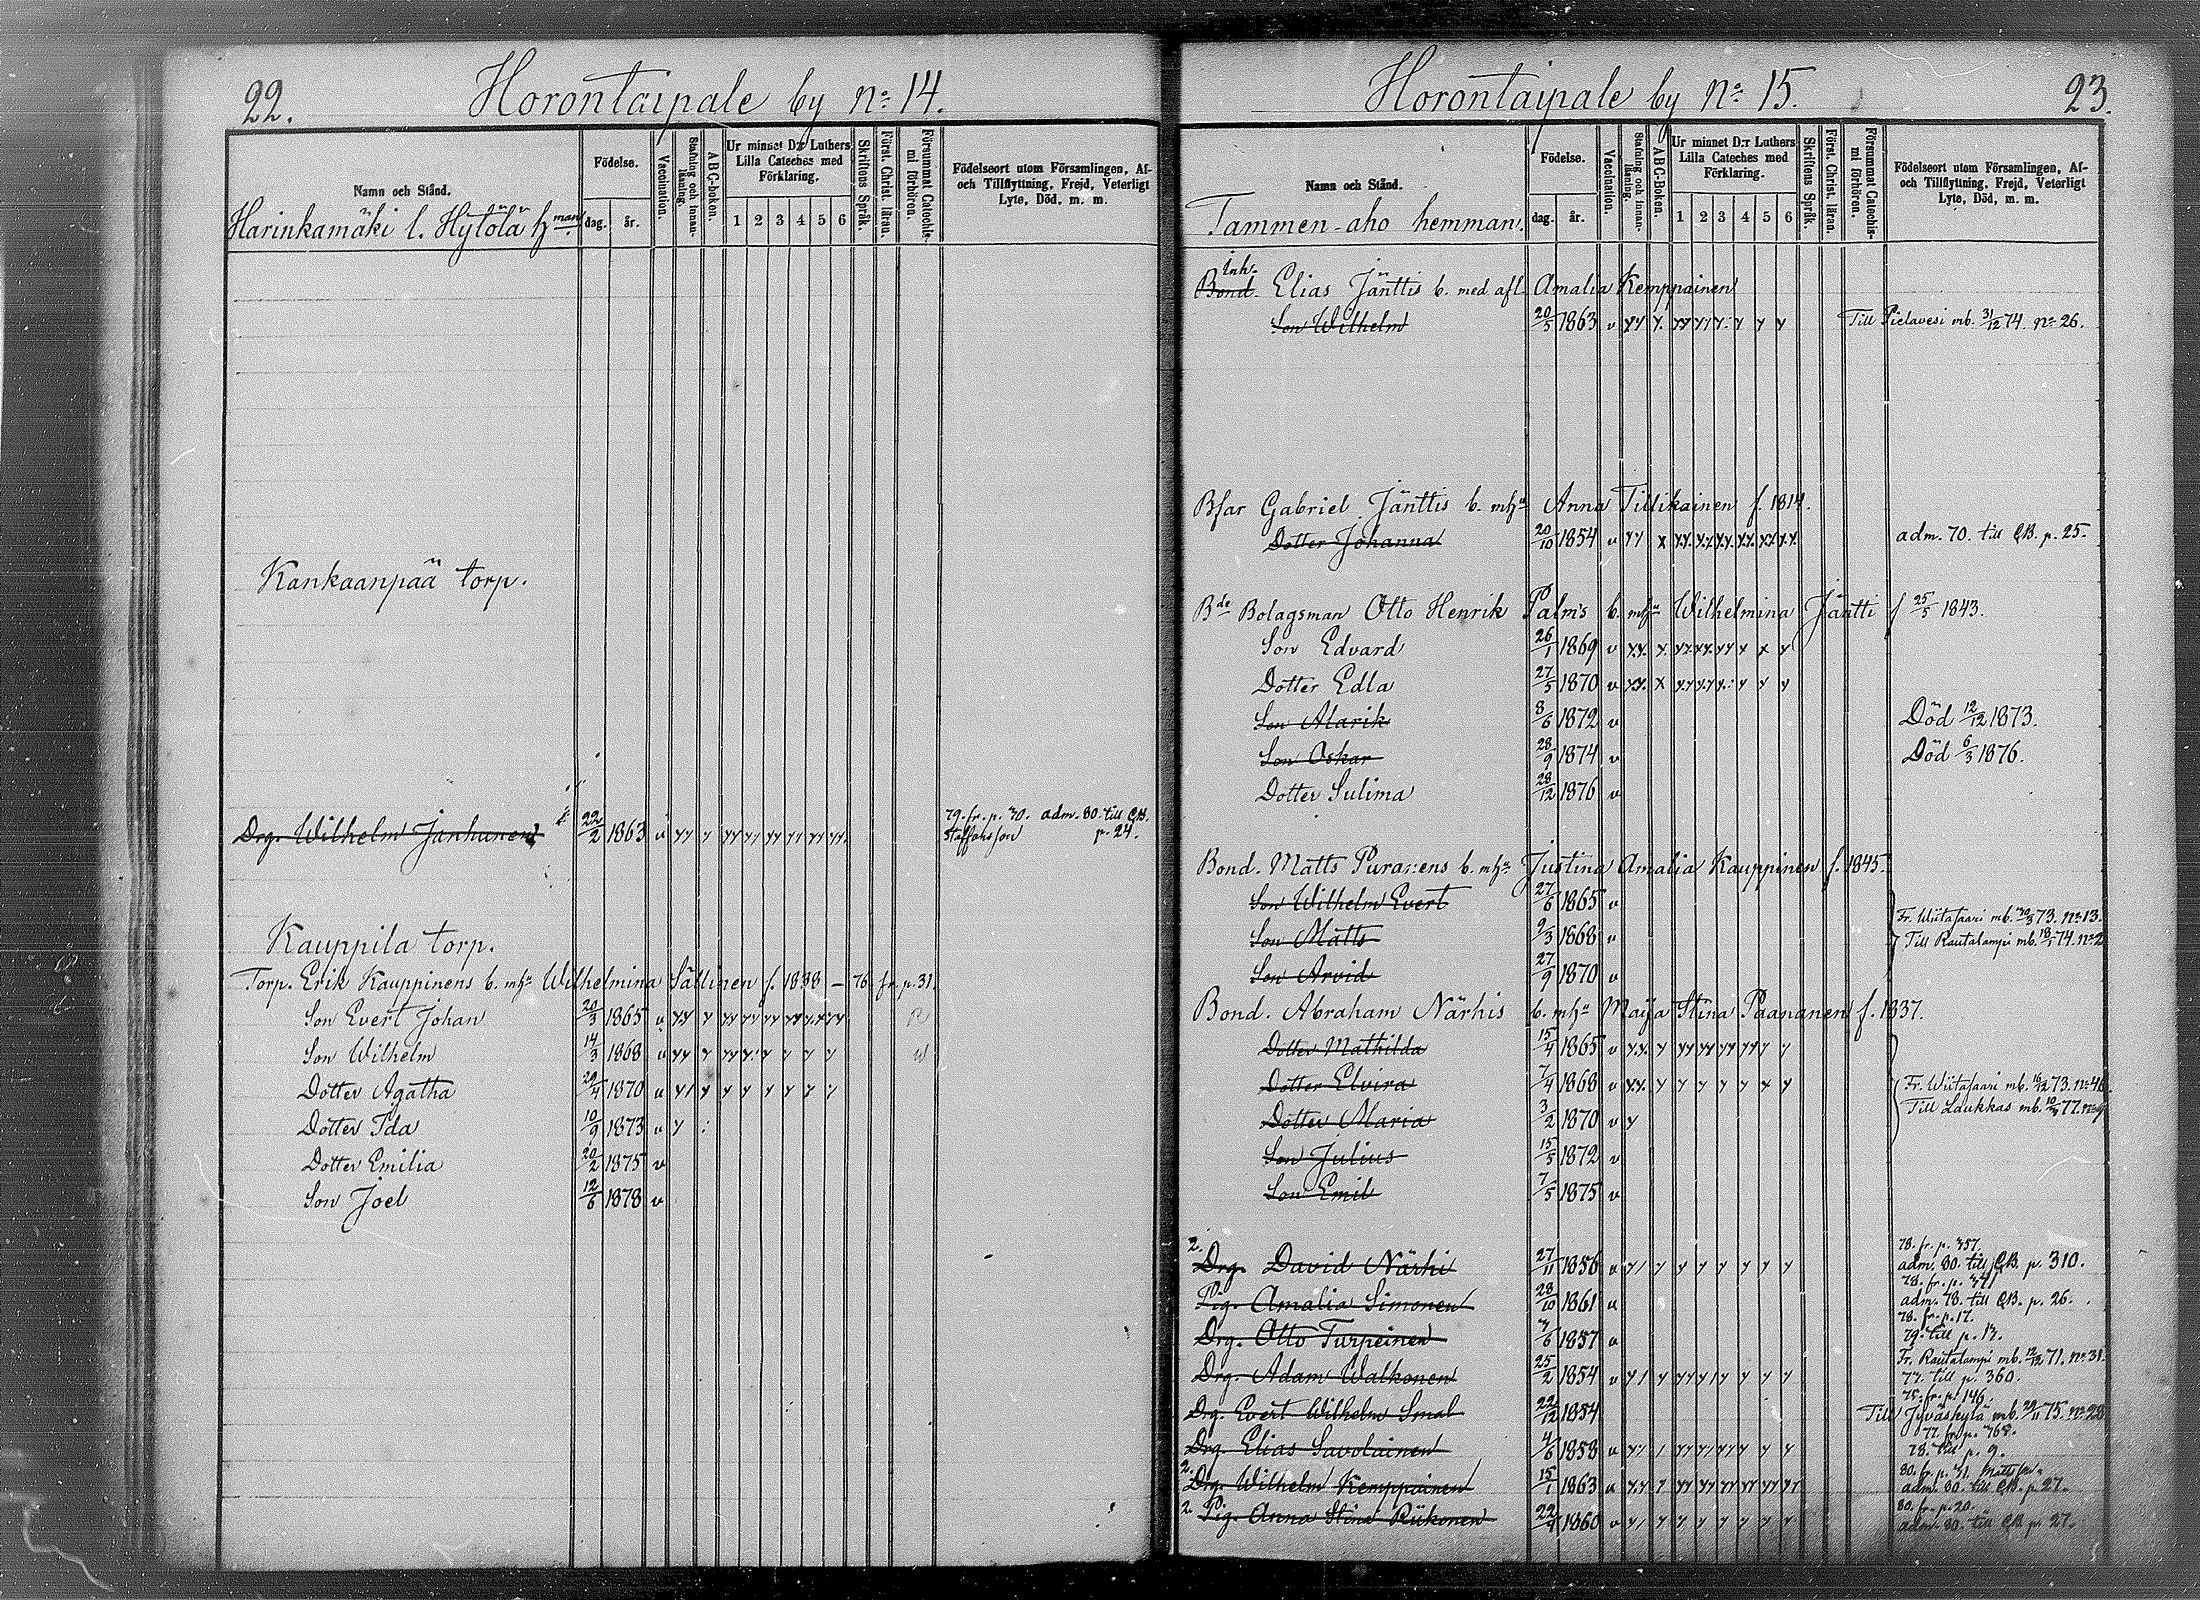 22.
Horontaipale by No 14.
Namn och Stånd.
Födelse.
dag.
år.
Vaccination.
Stafning och innanläsning.
ABC-boken.
Ur minnet D:r Luthers Lilla Cateches med Förklaring.
1 2 3 4 5 6
Skriftens Språk.
Först. Christ. läran.
Försummat Catechismi förhören.
Födelseort utom Församlingen, Af- och Tillflyttning, Frejd, Veterligt Lyte, Död, m. m.
Harinkamäki l. Hytölä hman.
Kankaanpää torp.
Drg. Wilhelm Janhunen 22/2 1863 v 79. fr. p. 30. adm. 80. till CB. p. 24.
Staffansson
Kauppila torp.
Torp. Erik Kauppinens b. mhu Wilhelmina Sällinen f. 1838 – 76 fr. p. 31.
Son Evert Johan 20/3 1865 v
Son Wilhelm 14/3 1868 v
Dotter Agatha 29/4 1870 v
Dotter Ida 10/9 1873 v
Dotter Emilia 20/2 1875 v
Son Joel 12/6 1878 v
Horontaipale by No 15.
23.
Namn och Stånd.
Födelse.
dag.
år.
Vaccination.
Stafning och innanläsning.
ABC-Boken.
Ur minnet D:r Luthers Lilla Cateches med Förklaring.
1 2 3 4 5 6
Skriftens Språk.
Först. Christ. läran.
Försummat Catechismi förhören.
Födelseort utom Församlingen, Af- och Tillflyttning, Frejd, Veterligt Lyte, Död, m. m.
Tammen-aho hemman.
Inh.
Bond. Elias Jänttis b. med afl. Amalia Kemppainen
Son Wilhelm 20/5 1863 v Till Pielavesi mb. 31/12 74. no 26.
Bfar Gabriel Jänttis b. mhu Anna Tillikainen f. 1814.
Dotter Johanna 20/10 1854 v adm. 70. till CB. p. 25.
Bde Bolagsman Otto Henrik Palms b. mhu Wilhelmina Jäntti f 25/5 1843.
Son Edvard 26/1 1869 v
Dotter Edla 27/5 1870 v
Son Alarik 8/6 1872 v Död 12/12 1873.
Son Oskar 28/9 1874 v Död 6/3 1876.
Dotter Sulima 28/12 1876 v
Bond. Matts Puranens b. mhu Justina Amalia Kauppinen f. 1845.
Son Wilhelm Evert 27/6 1865 v
Fr. Wiitasaari mb. 73. no 13.
Son Matts 9/3 1868 v Till Rautalampi mb. 18/1 74. no 2
Son Arvid 27/9 1870 v
Bond. Abraham Närhis b. mhu Maija Stina Paananen f. 1837.
Dotter Mathilda 15/4 1865 v
Dotter Elvira 7/4 1868 v Fr. Wiitasaari mb. 16/12 73. no 46.
Till Laukkas mb. 77.
Dotter Maria 3/2 1870 v
Son Julius 15/5 1872 v
Son Emil 7/5 1875 v
2. Drg. David Närhi 27/11 1856 v 78. fr. p. 357. adm. 80. till CB. p. 310.
Pig. Amalia Simonen 28/10 1861 v 78. fr. p. adm. 78. till CB. p. 26.
Drg. Otto Turpeinen 7/6 1857 v 78. fr. p. 17. 79. till p. 17.
Drg. Adam Walkonen 25/2 1854 v Fr. Rautalampi mb. 12/12 71. no 31. 77. till p. 360.
Drg. Evert Wilhelm Smal 22/12 1854 75. fr. p. 146. Till Jyväskylä mb. 29/11 75. no 28
Drg. Elias Savolainen 4/6 1858 v 77. fr. p. 768. 78. till p. 9.
2. Drg. Wilhelm Kemppainen 15/1 1863 v 80. fr. p. 31. adm. 80. till CB. p. 27.
2. Pig. Anna Stina Riikonen 22/4 1860 v 80. fr. p. 20. adm. 80. till CB p. 27.